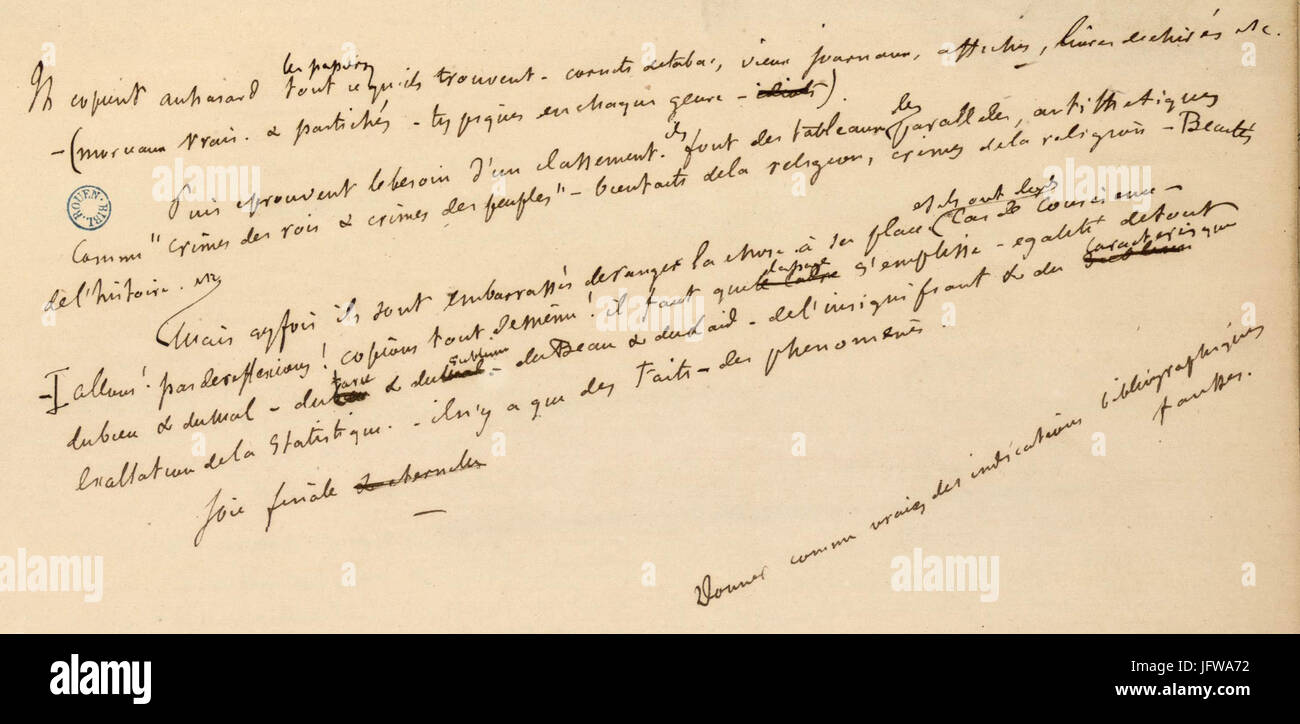 les papiers
Ils copient au hasard tout ce qu'ils trouvent - cornets de tabac, vieux journaux, affiches, livres déchirés etc.
- (morceaux vrais. & pastichés - typiques en chaque genre - idiots).
ils les
Puis eprouvent le besoin d'un classement. font des tableaux, parallèles, antithetiques
comme "crimes des rois & crimes des peuples" - bienfaits de la religion, crimes de la religion - Beautés
de l'histoire. etc
et ils ont des
Mais qqfois ils sont embarrassés de ranger la chose à sa place Cas de conscience -
- allons! pas de reflexions! copions tout de même! il faut que la page le cadre s'emplisse - egalité de tout
caracteristique
du bien & du mal - du farce & du sublime - du Beau & du Laid - de l'insignifiant & du sublime
Exaltation de la statistique. - il n'y a que des faits - des phenomenes.
Joie finale & eternelle
Donner comme vraies des indications bibliographiques
fausses.
BIBL. ROUEN
alamy
alamy stock photo
JFWA72
www.alamy.com